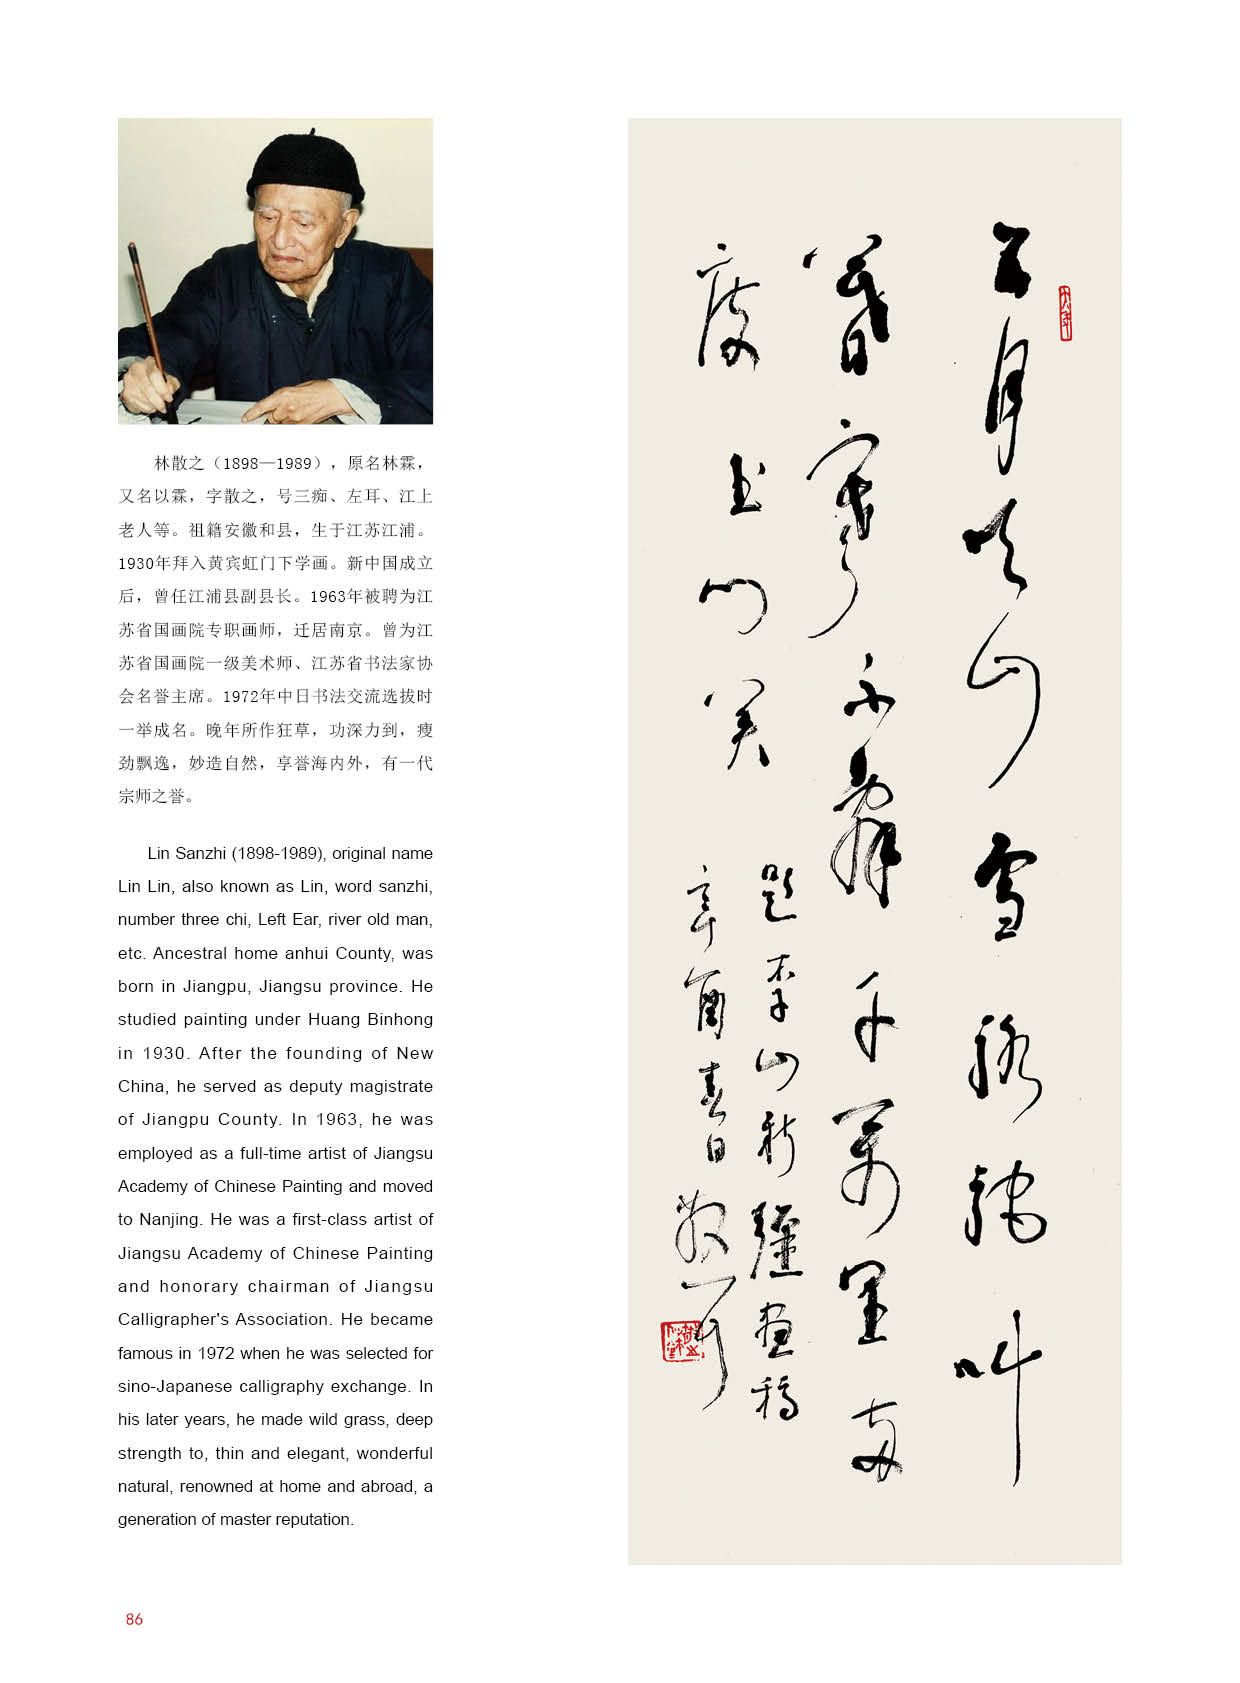 林散之（1898—1989），原名林霖，
又名以霖，字散之，号三痴、左耳、江上
老人等。祖籍安徽和县，生于江苏江浦。
1930年拜入黄宾虹门下学画。新中国成立
后，曾任江浦县副县长。1963年被聘为江
苏省国画院专职画师，迁居南京。曾为江
苏省国画院一级美术师、江苏省书法家协
会名誉主席。1972年中日书法交流选拔时
一举成名。晚年所作狂草，功深力到，瘦
劲飘逸，妙造自然，享誉海内外，有一代
宗师之誉。
Lin Sanzhi (1898-1989), original name
Lin Lin, also known as Lin, word sanzhi,
number three chi, Left Ear, river old man,
etc. Ancestral home anhui County, was
born in Jiangpu, Jiangsu province. He
studied painting under Huang Binhong
in 1930. After the founding of New
China, he served as deputy magistrate
of Jiangpu County. In 1963, he was
employed as a full-time artist of Jiangsu
Academy of Chinese Painting and moved
to Nanjing. He was a first-class artist of
Jiangsu Academy of Chinese Painting
and honorary chairman of Jiangsu
Calligrapher's Association. He became
famous in 1972 when he was selected for
sino-Japanese calligraphy exchange. In
his later years, he made wild grass, deep
strength to, thin and elegant, wonderful
natural, renowned at home and abroad, a
generation of master reputation.
五月天山雪
千萬里
度玉門關
題李山新疆畫稿
辛酉春日散耳
86